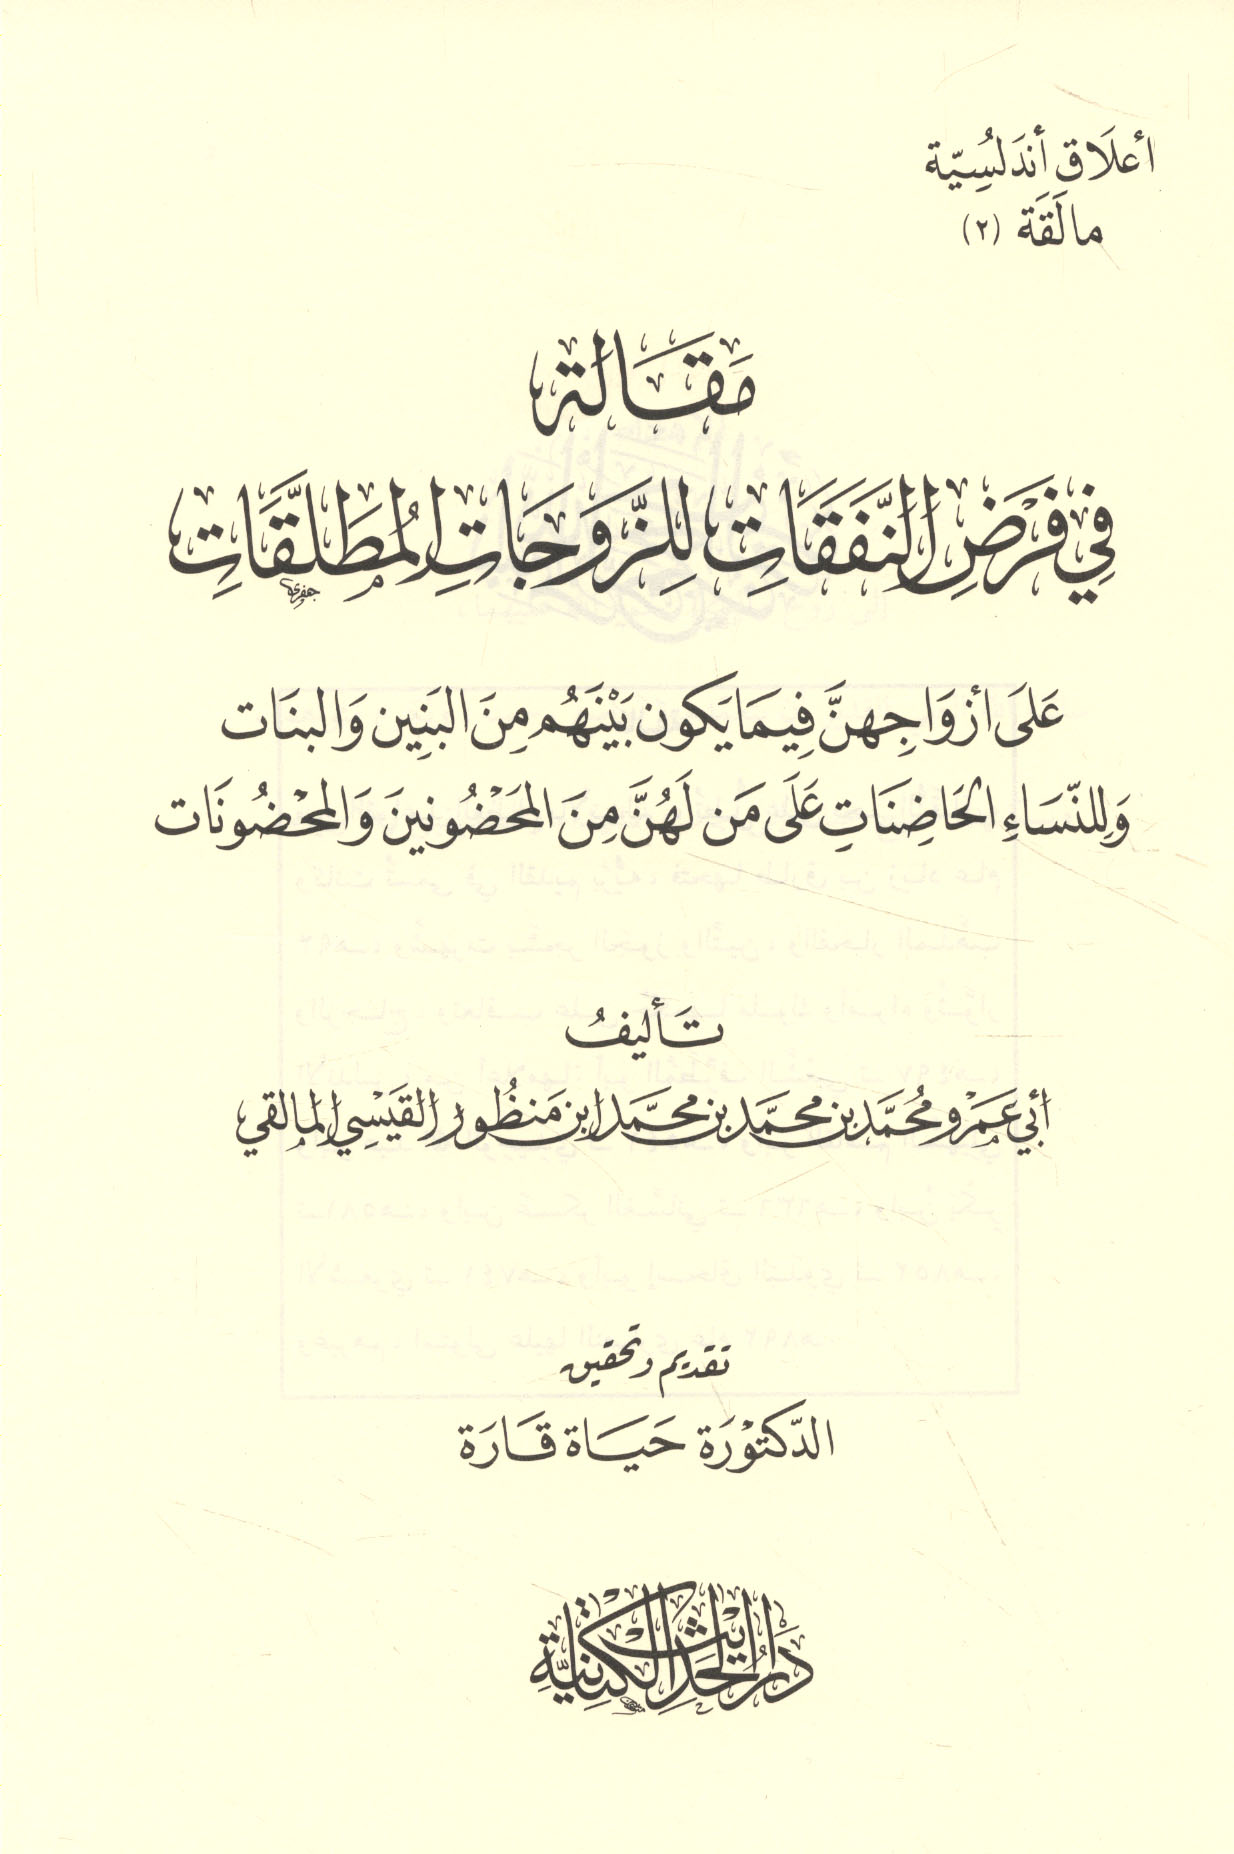 أعلَاق أندَلسُِيّة
مالَقَة (٢)
مَقَالة
فِي فَرْضِ النَّفَقَاتِ لِلزَّوَجَاتِ المُطَلَّقَاتِ
عَلَى أزوَاجِهنَّ فِيمَا يَكون بَيْنَهُم مِنَ البَنِين وَالبنَات
وَلِلنّسَاءِ الحَاضِنَاتِ عَلَى مَن لَهُنَّ مِنَ المَحْضُونينَ وَالمَحْضُونَات
تَأليفُ
أبي عَمَرْو مُحمَّد بن محمَّد بن محمَّد ابن مَنظُور القَيَسْي المالقي
تقديم وتحقيق
الدّكتوْرَة حَيَاة قَارَة
دَارُ الحَدِيثِ الكتانِيَّةِ